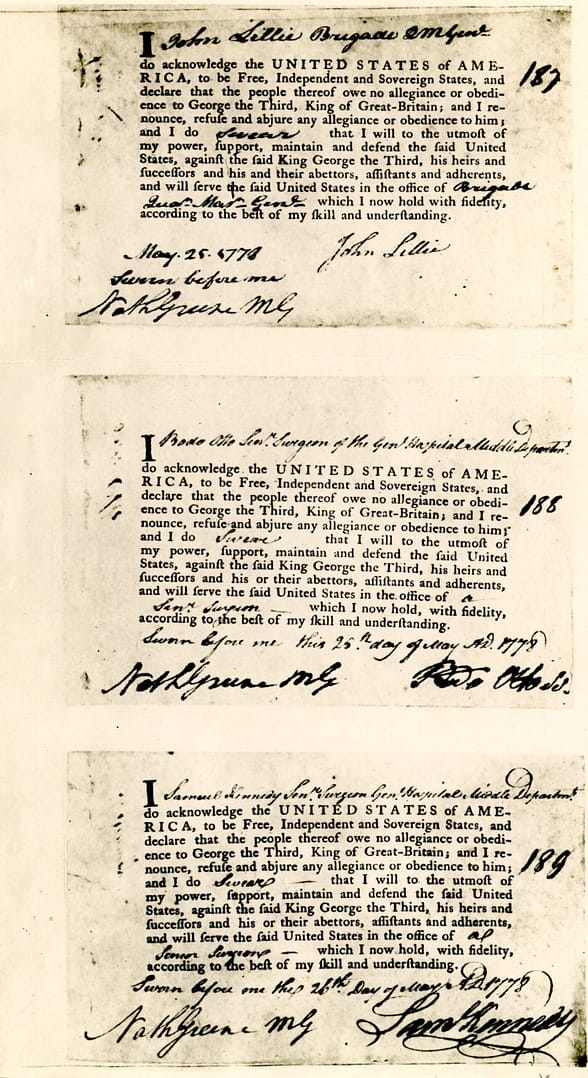 I John Lillie Brigade QMGenl.
do acknowledge the UNITED STATES of AME-
RICA, to be Free, Independent and Sovereign States, and
declare that the people thereof owe no allegiance or obedi-
ence to George the Third, King of Great-Britain; and I re-
nounce, refuse and abjure any allegiance or obedience to him;
and I do swear that I will to the utmost of
my power, support, maintain and defend the said United
States, against the said King George the Third, his heirs and
successors and his and their abettors, assistants and adherents,
and will serve the said United States in the office of Brigade
Quar. Mas. Genl. which I now hold with fidelity,
according to the best of my skill and understanding.
187
May. 25. 1778 John Lillie
Sworn before me
NathGreene MG
I Bodo Otto Senr. Surgeon of the Genl. Hospital Middle Departmt.
do acknowledge the UNITED STATES of AME-
RICA, to be Free, Independent and Sovereign States, and
declare that the people thereof owe no allegiance or obedi-
ence to George the Third, King of Great-Britain; and I re-
nounce, refuse and abjure any allegiance or obedience to him;
and I do Swear that I will to the utmost of
my power, support, maintain and defend the said United
States, against the said King George the Third, his heirs and
successors and his or their abettors, assistants and adherents,
and will serve the said United States in the office of a
Senr. Surgeon which I now hold, with fidelity,
according to the best of my skill and understanding.
188
Sworn before me this 25th day of May AD. 1778
NathGreene MG Bodo Otto
I Samuel Kennedy Senr. Surgeon Genl. Hospital Middle Departmt.
do acknowledge the UNITED STATES of AME-
RICA, to be Free, Independent and Sovereign States, and
declare that the people thereof owe no allegiance or obedi-
ence to George the Third, King of Great-Britain; and I re-
nounce, refuse and abjure any allegiance or obedience to him;
and I do Swear that I will to the utmost of
my power, support, maintain and defend the said United
States, against the said King George the Third, his heirs and
successors and his or their abettors, assistants and adherents,
and will serve the said United States in the office of as
Senior Surgeon which I now hold, with fidelity,
according to the best of my skill and understanding.
189
Sworn before me this 26th Day of May AD. 1778
NathGreene MG Saml Kennedy